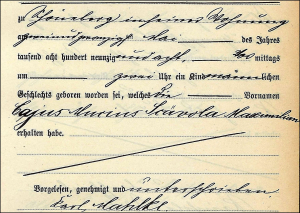 zu Schöneberg in seiner Wohnung
zweiundzwanzigsten Mai des Jahres
tausend acht hundert neunzig und acht, mittags
um zwei Uhr ein Kind männlichen
Geschlechts geboren worden sei, welches die Vornamen
Cajus Mucius Scävola Maximilian
erhalten habe.
Vorgelesen, genehmigt und unterschrieben.
Karl